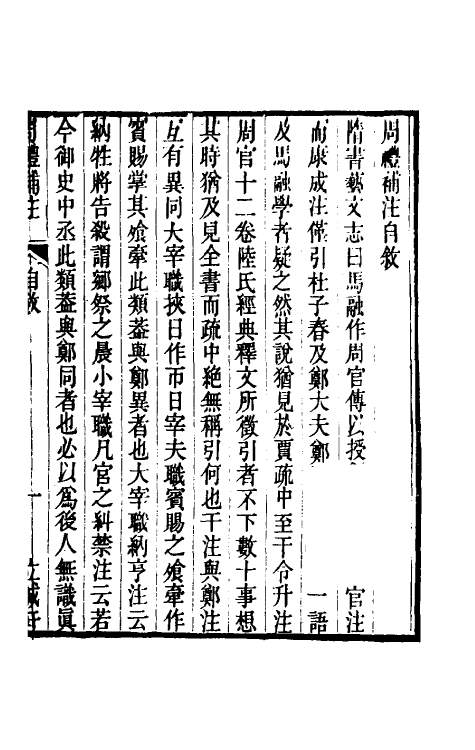 周禮補注自敘
隋書藝文志曰馬融作周官傳以授 官注
而康成注僅引杜子春及鄭大夫鄭 一語
及馬融學者疑之然其說猶見於賈疏中至干令升注
周官十二卷陸氏經典釋文所徵引者不下數十事想
其時猶及見全書而疏中絶無稱引何也干注與鄭注
互有異同大宰職挾日作帀日宰夫職賓賜之飧牽作
賓賜掌其飧牽此類蓋與鄭異者也大宰職納亨注云
納牲將告殺謂鄉祭之晨小宰職凡官之糾禁注云若
今御史中丞此類蓋與鄭同者也必以爲後人無識眞
周禮補注 自敘 一